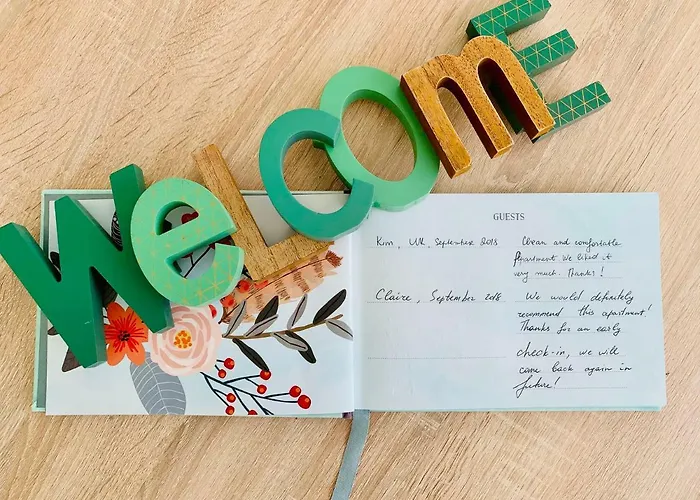 WeLCOmE
GUESTS
Kim, UK, September 2018
Clean and comfortable
Apartment. We liked it
very much. Thanks!
Claire, September 2018
We would definitely
recommend this apartment!
Thanks for an early
check-in, we will
come back again in
future!